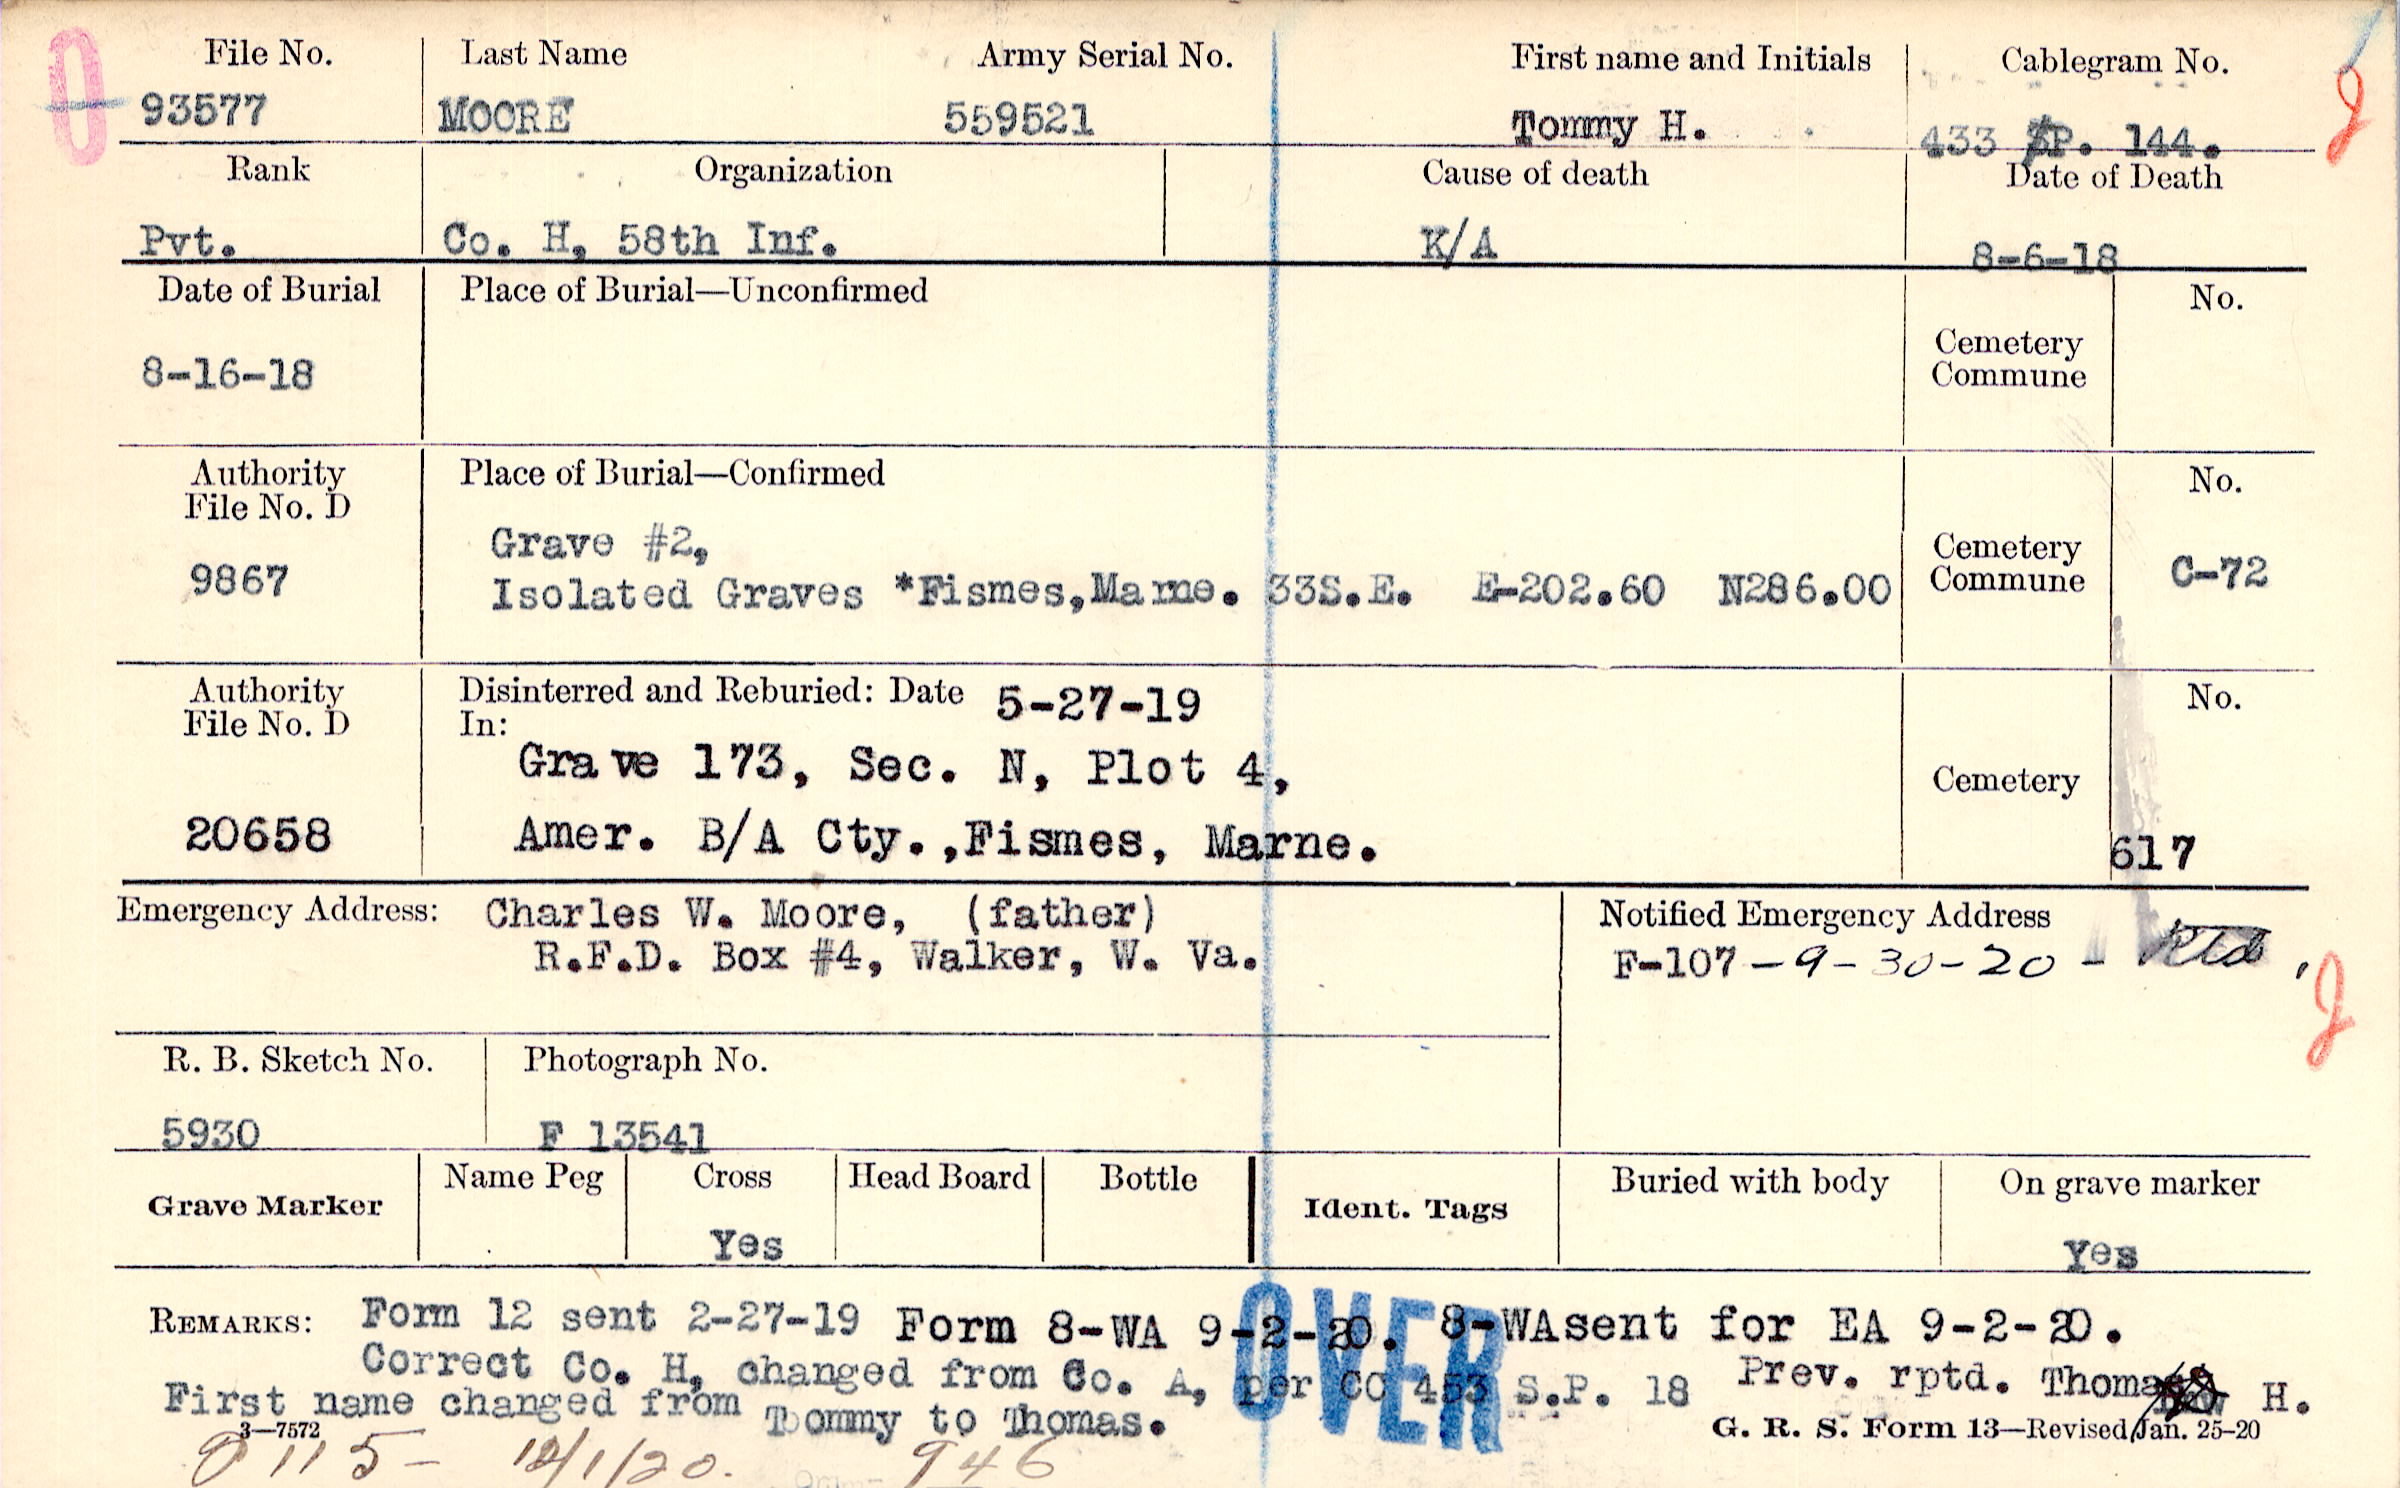 0
File No. Last Name Army Serial No. First name and Initials Cablegram No.
93577 MOORE 559521 Tommy H. 433 SP. 144.
J
Rank Organization Cause of death Date of Death
Pvt. Co. H, 58th Inf. K/A 8-6-18
Date of Burial Place of Burial—Unconfirmed No.
8-16-18
Cemetery
Commune
Authority Place of Burial—Confirmed No.
File No. D
9867
Grave #2,
Isolated Graves *Fismes,Marne. 33S.E. E-202.60 N286.00
Cemetery
Commune
C-72
Authority Disinterred and Reburied: Date 5-27-19 No.
File No. D In:
Grave 173, Sec. N, Plot 4,
Cemetery
20658 Amer. B/A Cty.,Fismes, Marne. 617
Emergency Address: Charles W. Moore, (father)
R.F.D. Box #4, Walker, W. Va.
Notified Emergency Address
F-107-9-30-20-
J
R. B. Sketch No. Photograph No.
5930 F 13541
Grave Marker Name Peg Cross Head Board Bottle Ident. Tags Buried with body On grave marker
Yes Yes
REMARKS: Form 12 sent 2-27-19 Form 8-WA 9-2-20. 8-WAsent for EA 9-2-20.
Correct Co. H, changed from Co. A, per CC 453 S.P. 18 Prev. rptd. Thomas H.
First name changed from Tommy to Thomas.
OVER
3—7572 G. R. S. Form 13—Revised Jan. 25-20
115- 12/1/20. 946